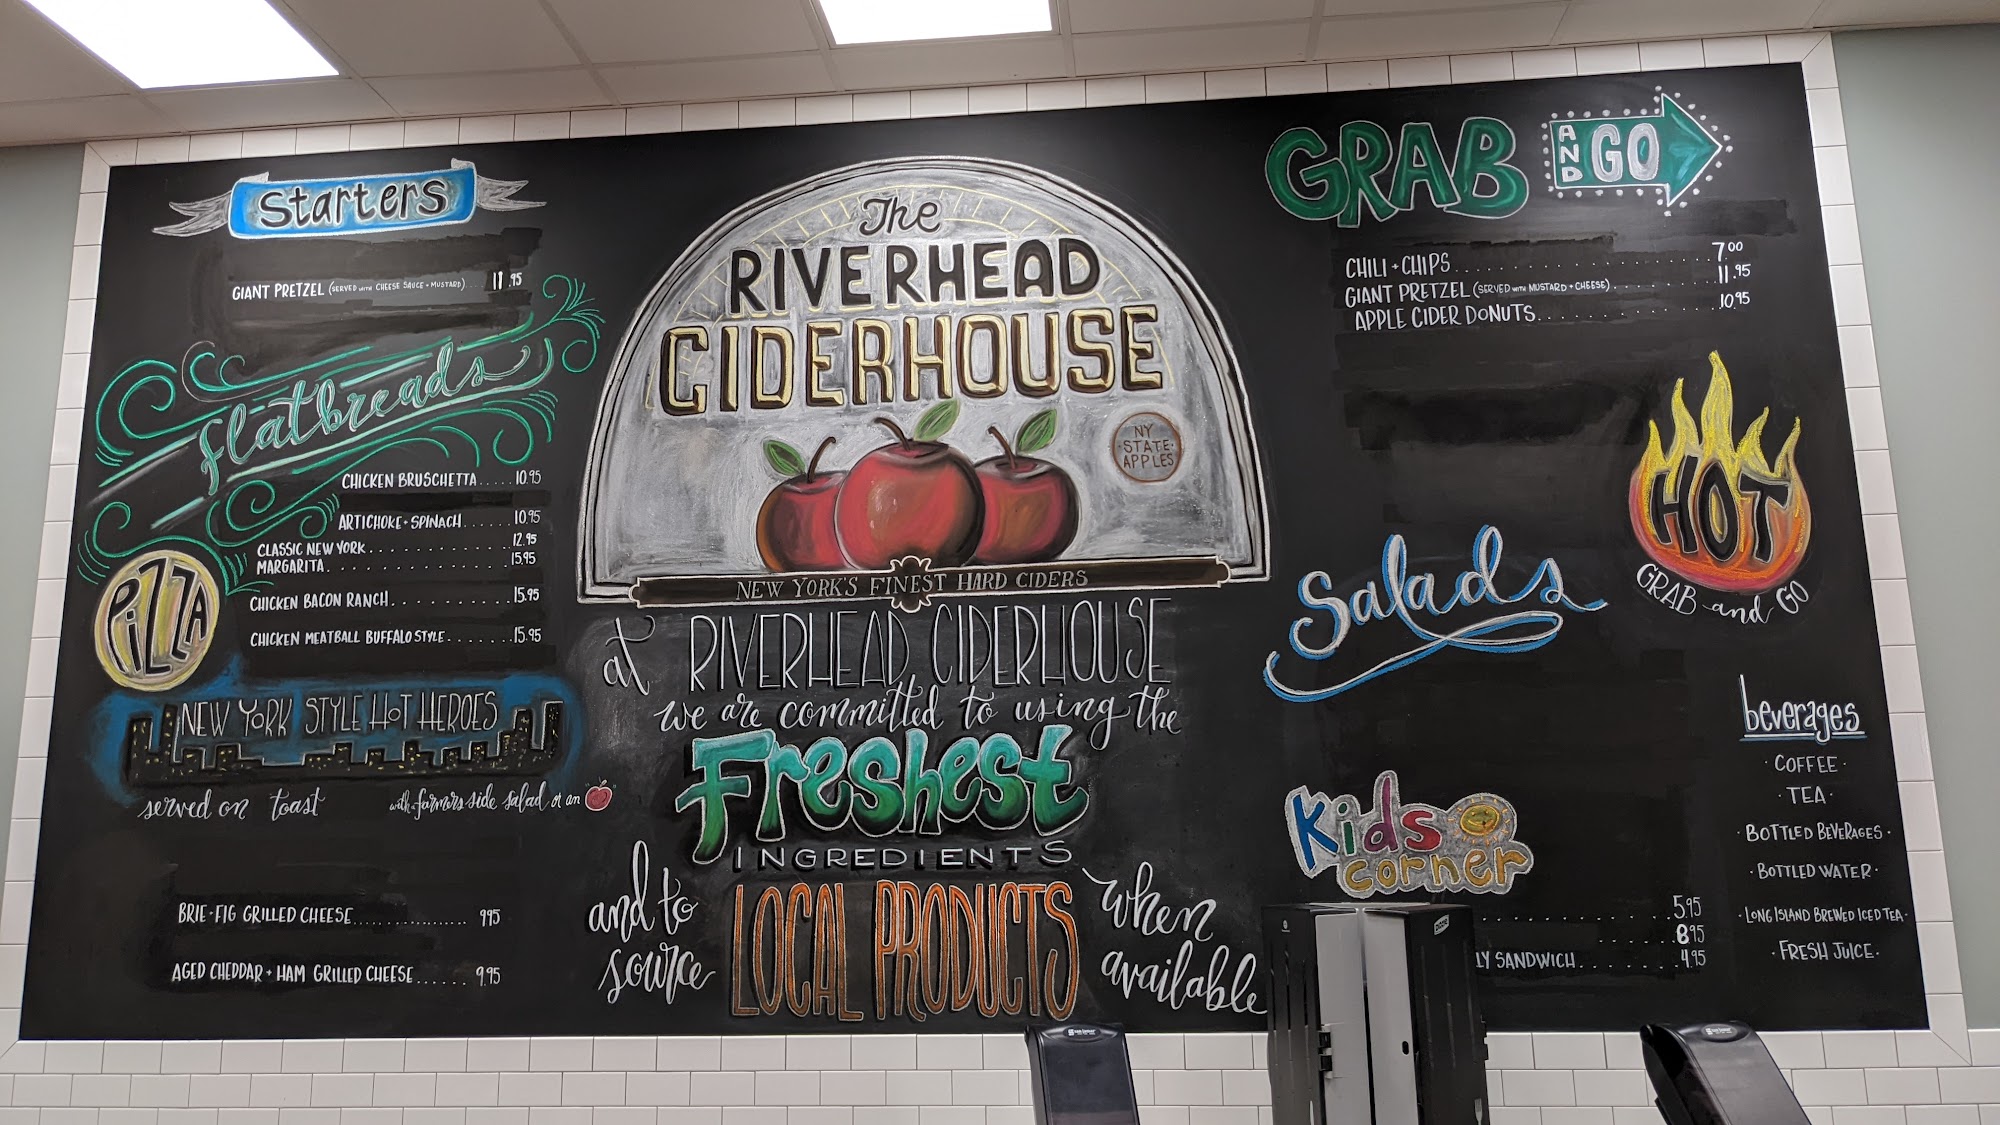 Starters
GIANT PRETZEL (SERVED with CHEESE SAUCE + MUSTARD).... 11.95
flatbreads
CHICKEN BRUSCHETTA..... 10.95
ARTICHOKE + SPINACH...... 10.95
PIZZA
CLASSIC NEW YORK.................... 12.95
MARGARITA......................... 15.95
CHICKEN BACON RANCH.............. 15.95
CHICKEN MEATBALL BUFFALO STYLE........ 15.95
NEW YORK STYLE HOT HEROES
served on toast with farmers side salad or an
BRIE + FIG GRILLED CHEESE.................. 9.95
AGED CHEDDAR + HAM GRILLED CHEESE...... 9.95
The
RIVERHEAD
CIDERHOUSE
NY
·STATE·
APPLES
NEW YORK'S FINEST HARD CIDERS
at RIVERHEAD CIDERHOUSE
we are committed to using the
Freshest
INGREDIENTS
and to source LOCAL PRODUCTS when available
GRAB AND GO
CHILI + CHIPS.......................... 7.00
GIANT PRETZEL (SERVED with MUSTARD + CHEESE)............ 11.95
APPLE CIDER DONUTS.................. 10.95
HOT
GRAB and GO
Salads
Kids
corner
5.95
8.95
LY SANDWICH............ 4.95
beverages
· COFFEE ·
· TEA ·
· BOTTLED BEVERAGES ·
· BOTTLED WATER ·
· LONG ISLAND BREWED ICED TEA ·
· FRESH JUICE ·